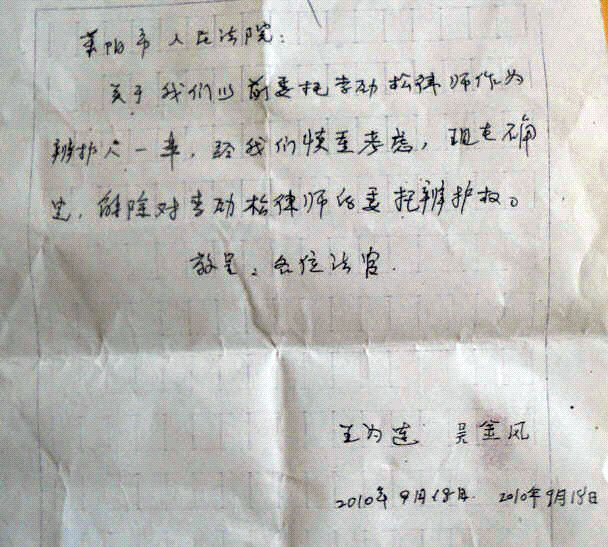 莱阳市人民法院:
关于我们以前委托李劲松律师作为
辨护人一事,经我们慎重考虑,现在确
定,解除对李劲松律师的委托辨护权。
敬呈:各位法官.
王为连 吴金风
2010年9月18日. 2010年9月18日